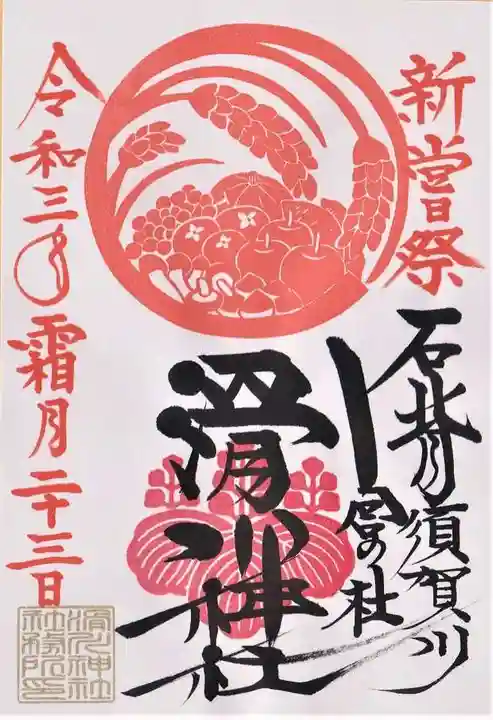 新嘗祭
石背
須賀川
宮の杜
滑川神社
令和三年
霜月二十三日
滑川神社
社務所印